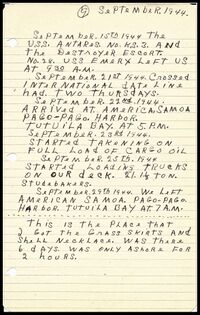 ⑤ September 1944.
September. 15th 1944 The
U.S.S. Antares No. K.S.3. And
the Destroyer Escort
No. 28. USS Emery Left Us
At 930 A.M.
September. 21st 1944. Crossed
International date Line
had. Two Thursdays.
September. 22nd. 1944.
Arrived At American Samoa
Pago-Pago. Harbor.
Tutuila Bay. At 5 P.M.
September. 23rd 1944.
Started Takening on
Full Load of Cargo oil
September. 25th. 1944
Started Loading Trucks
on our deck. 21 1½ ton.
Studebakers.
September. 29th 1944. We Left
American Samoa Pago-Pago
Harbor. Tutuila Bay. At 7 A.M.
This is the Place that
I Got the Grass Skirts And
Shell Necklace. Was There
6 days. Was only Ashore For
2 hours.